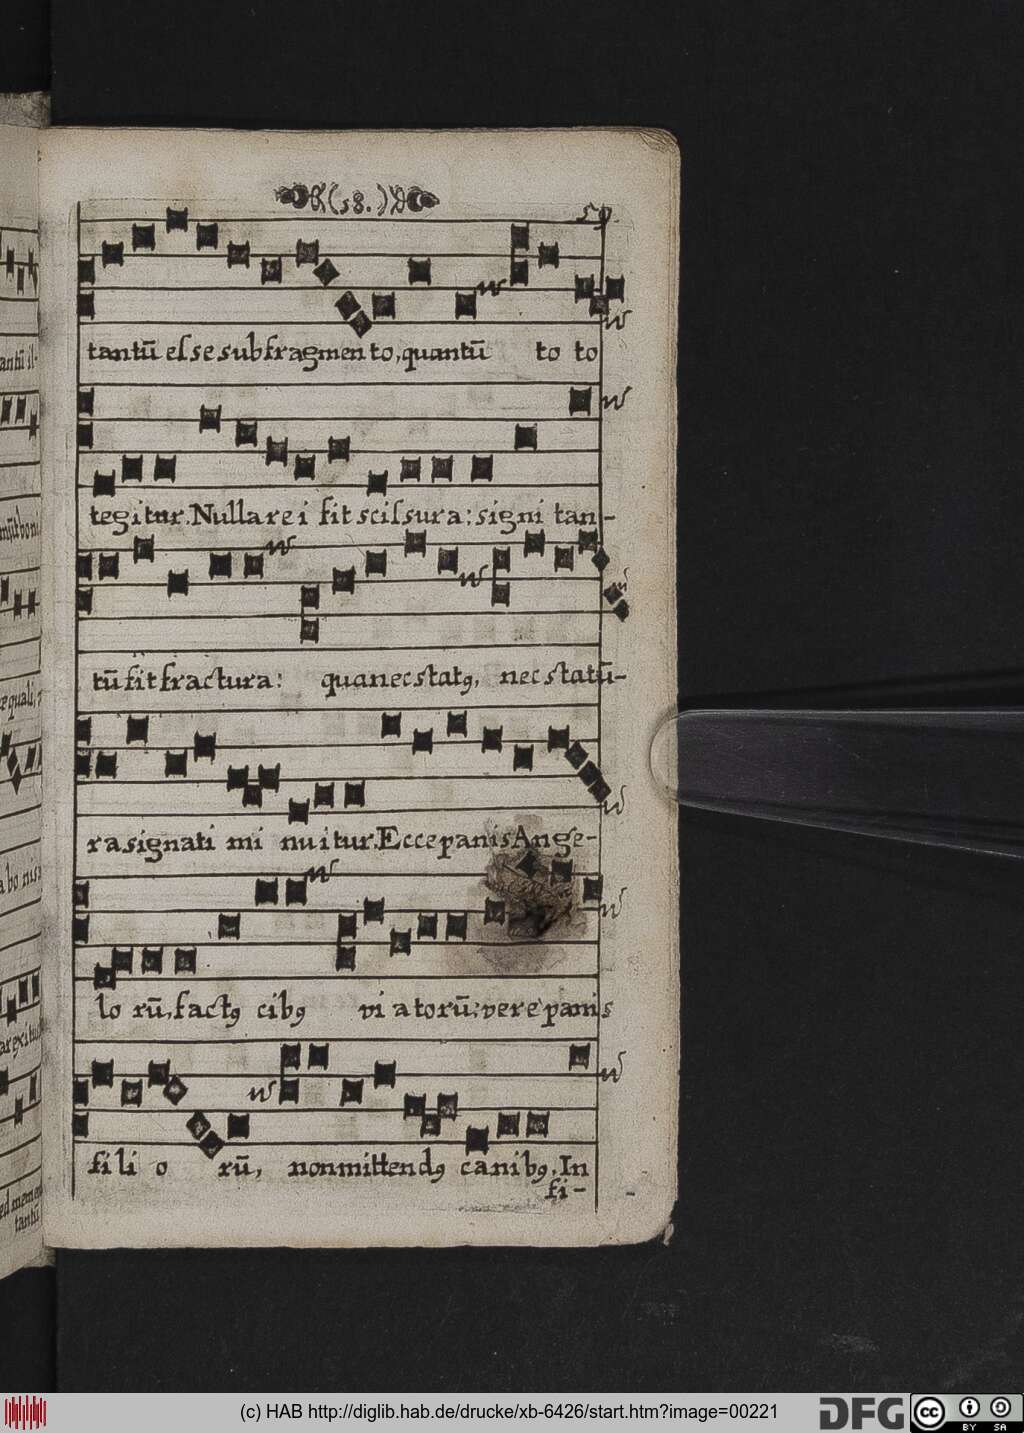 (58.)
59.
tantū esse sub fragmento, quantū toto
tegitur. Nulla rei fit scissura: signi tan-
tū fit fractura: qua nec statꝯ, nec statū-
ra signati minuitur. Ecce panis Ange-
lorū, factꝯ cibꝯ viatorū: vere panis
filiorū, non mittendꝯ canibꝯ. In
fi-
antū il-
bo ni
equali,
a bo nis
ar exitu
ed memen
tantū
(c) HAB http://diglib.hab.de/drucke/xb-6426/start.htm?image=00221
DFG
cc
BY SA